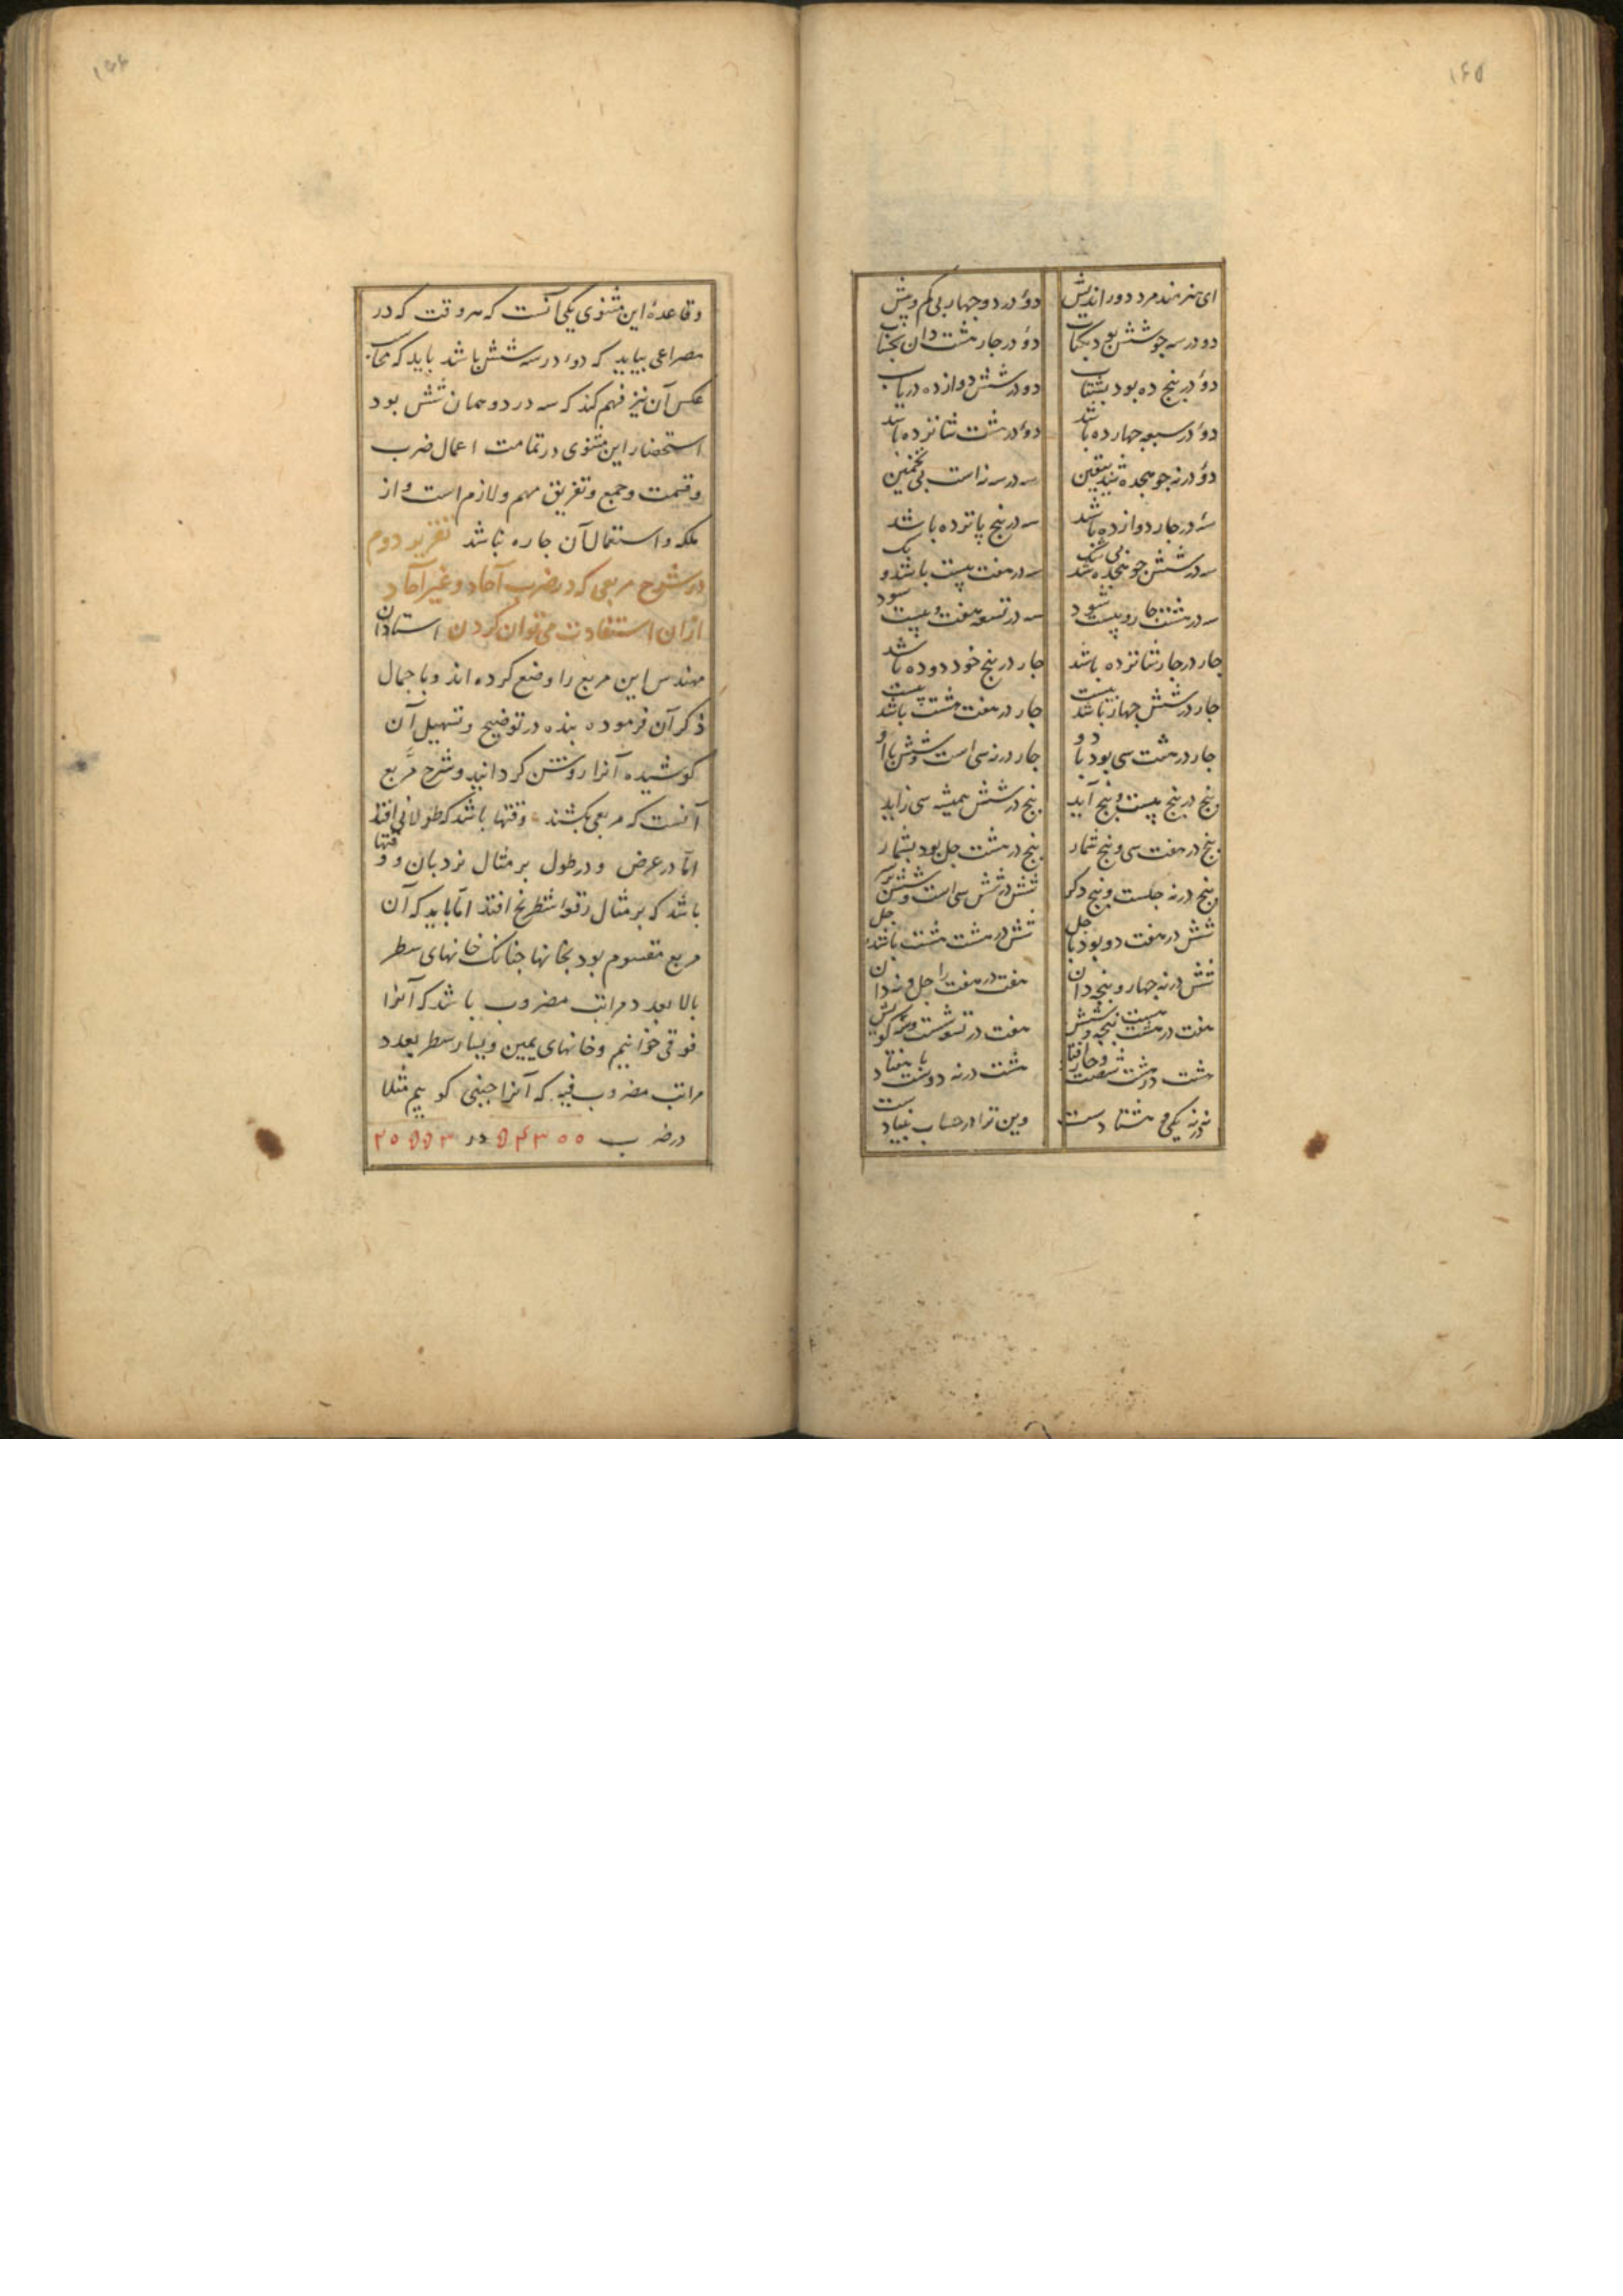 ۱۶۵
ای هنرمند مرد دوراندیش دو در دو چهار بی کم و بیش
دو در سه جو شش بود دو در جار هشت دان بحساب
دو در پنج ده بود بشتاب دو در شش دوازده دریاب
دو در سبعه چهارده باشد دو در هشت شانزده باشد
دو در نه جو هجده شد بیقین سه در سه نه است بی تخمین
سه در جار دوازده باشد سه در پنج پانزده باشد
سه در شش جو هجده شد بی شک سه در هفت بیست باشد و یک
سه در هشت جار و بیست شود سه در تسعه هفت و بیست شود
جار در جار شانزده باشد جار در پنج خود دو ده باشد
جار در شش چهار باشد بیست جار در هفت هشت باشد بیست
جار در هشت سی بود با دو جار در نه سی است و شش با او
پنج در پنج بیست و پنج آید پنج در شش همیشه سی زاید
پنج در هفت سی و پنج شمار پنج در هشت جل بود بشمار
پنج در نه جلست و پنج دکر شش در شش سی است و شش بر سر
شش در هفت دو بود با جل شش در هشت هشت باشد جل
شش در نه چهار و پنجه دان هفت در هفت را جل و نه دان
هفت در هشت هست پنجه و شش هفت در نه شصت و سه
هشت در هشت شصت و چار افتاد هشت در نه دو هست با هفتاد
نه در نه یکی و هشتادست وین ترا در حساب بنیادست
۱۶۶
و قاعدهٔ این مثنوی یکی آنست که هر وقت که در
مصراعی بیاید که دو در سه شش باشد باید که محاسب
عکس آن نیز فهم کند که سه در دو همان شش بود
استحضار این مثنوی در تمامت اعمال ضرب
و قسمت و جمع و تفریق مهم و لازم است و از
ملکه و استعمال آن جاره نباشد تقریر دوم
در شرح مربعی که در ضرب آحاد و غیر آحاد
ازان استفادت می توان کردن استادان
مهندس این مربع را وضع کرده اند و باجمال
ذکر آن فرموده بنده در توضیح و تسهیل آن
کوشیده آنرا روشن کردانید و شرح مربع
آنست که مربعی بکشند وقتها باشد که طولانی افتد
اما در عرض و در طول بر مثال نردبان و وقتها
باشد که بر مثال رقعهٔ شطرنج افتد اما باید که آن
مربع مقسوم بود بخانها جنانک خانهای سطر
بالا بعدد مراتب مضروب باشد که آنرا
فوقی خوانیم و خانهای یمین و یسار سطر بعدد
مراتب مضروب فیه که آنرا جنبی کوییم مثلا
در ضرب ۵۴۳۰۰ در ۲۰۵۵۳